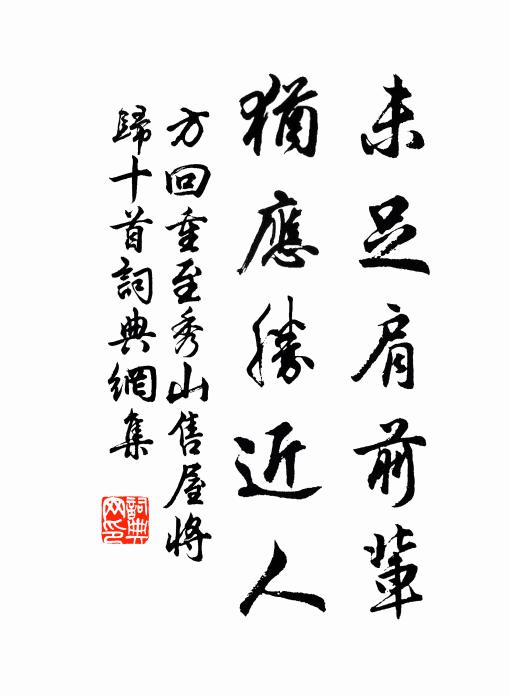 未足肩前輩
猶應勝近人
方回重至秀山售屋將
歸十首詞典網集
詞典
网印